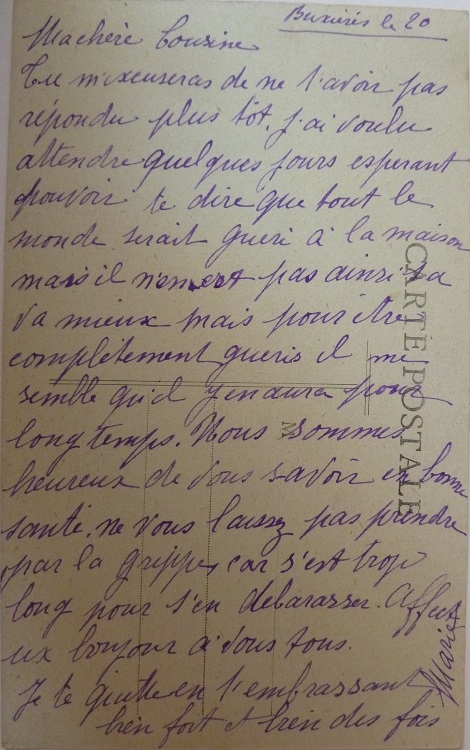 Buxières le 20
Ma chère Cousine
Tu m'exuseras de ne t'avoir pas
répondu plus tôt, j'ai voulu
attendre quelques jours esperant
pouvoir te dire que tout le
monde serait gueri à la maison
mais il n'en est pas ainsi sa
va mieux mais pour être
complètement gueris il me
semble qu'il y en aura pour
longtemps. Nous sommes
heureux de vous savoir en bonne
santé. ne vous laissez pas prendre
par la grippe, car s'est trop
long pour s'en debarasser. Affect
ux bonjour à vous tous.
Je te quitte en t'embrassant
bien fort et bien des fois
Marie
CARTE POSTALE
M